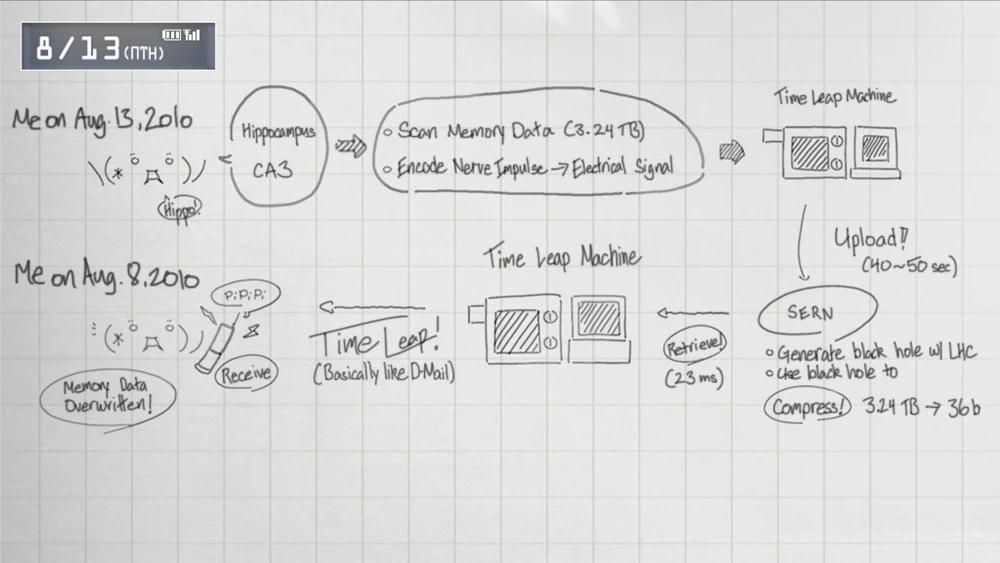 8/13(ПТН)
Me on Aug. 13, 2010
Hippo!
Hippocampus
CA3
Scan Memory Data (3.24TB)
Encode Nerve Impulse → Electrical Signal
Time Leap Machine
Upload!!
(40~50 sec)
SERN
Generate black hole w/ LHC
Use black hole to
Compress! 3.24 TB → 36b
Retrieve!
(23 ms)
Time Leap Machine
Time Leap!
(Basically like D-Mail)
Me on Aug. 8, 2010
PiPiPi
Receive
Memory Data
Overwritten!